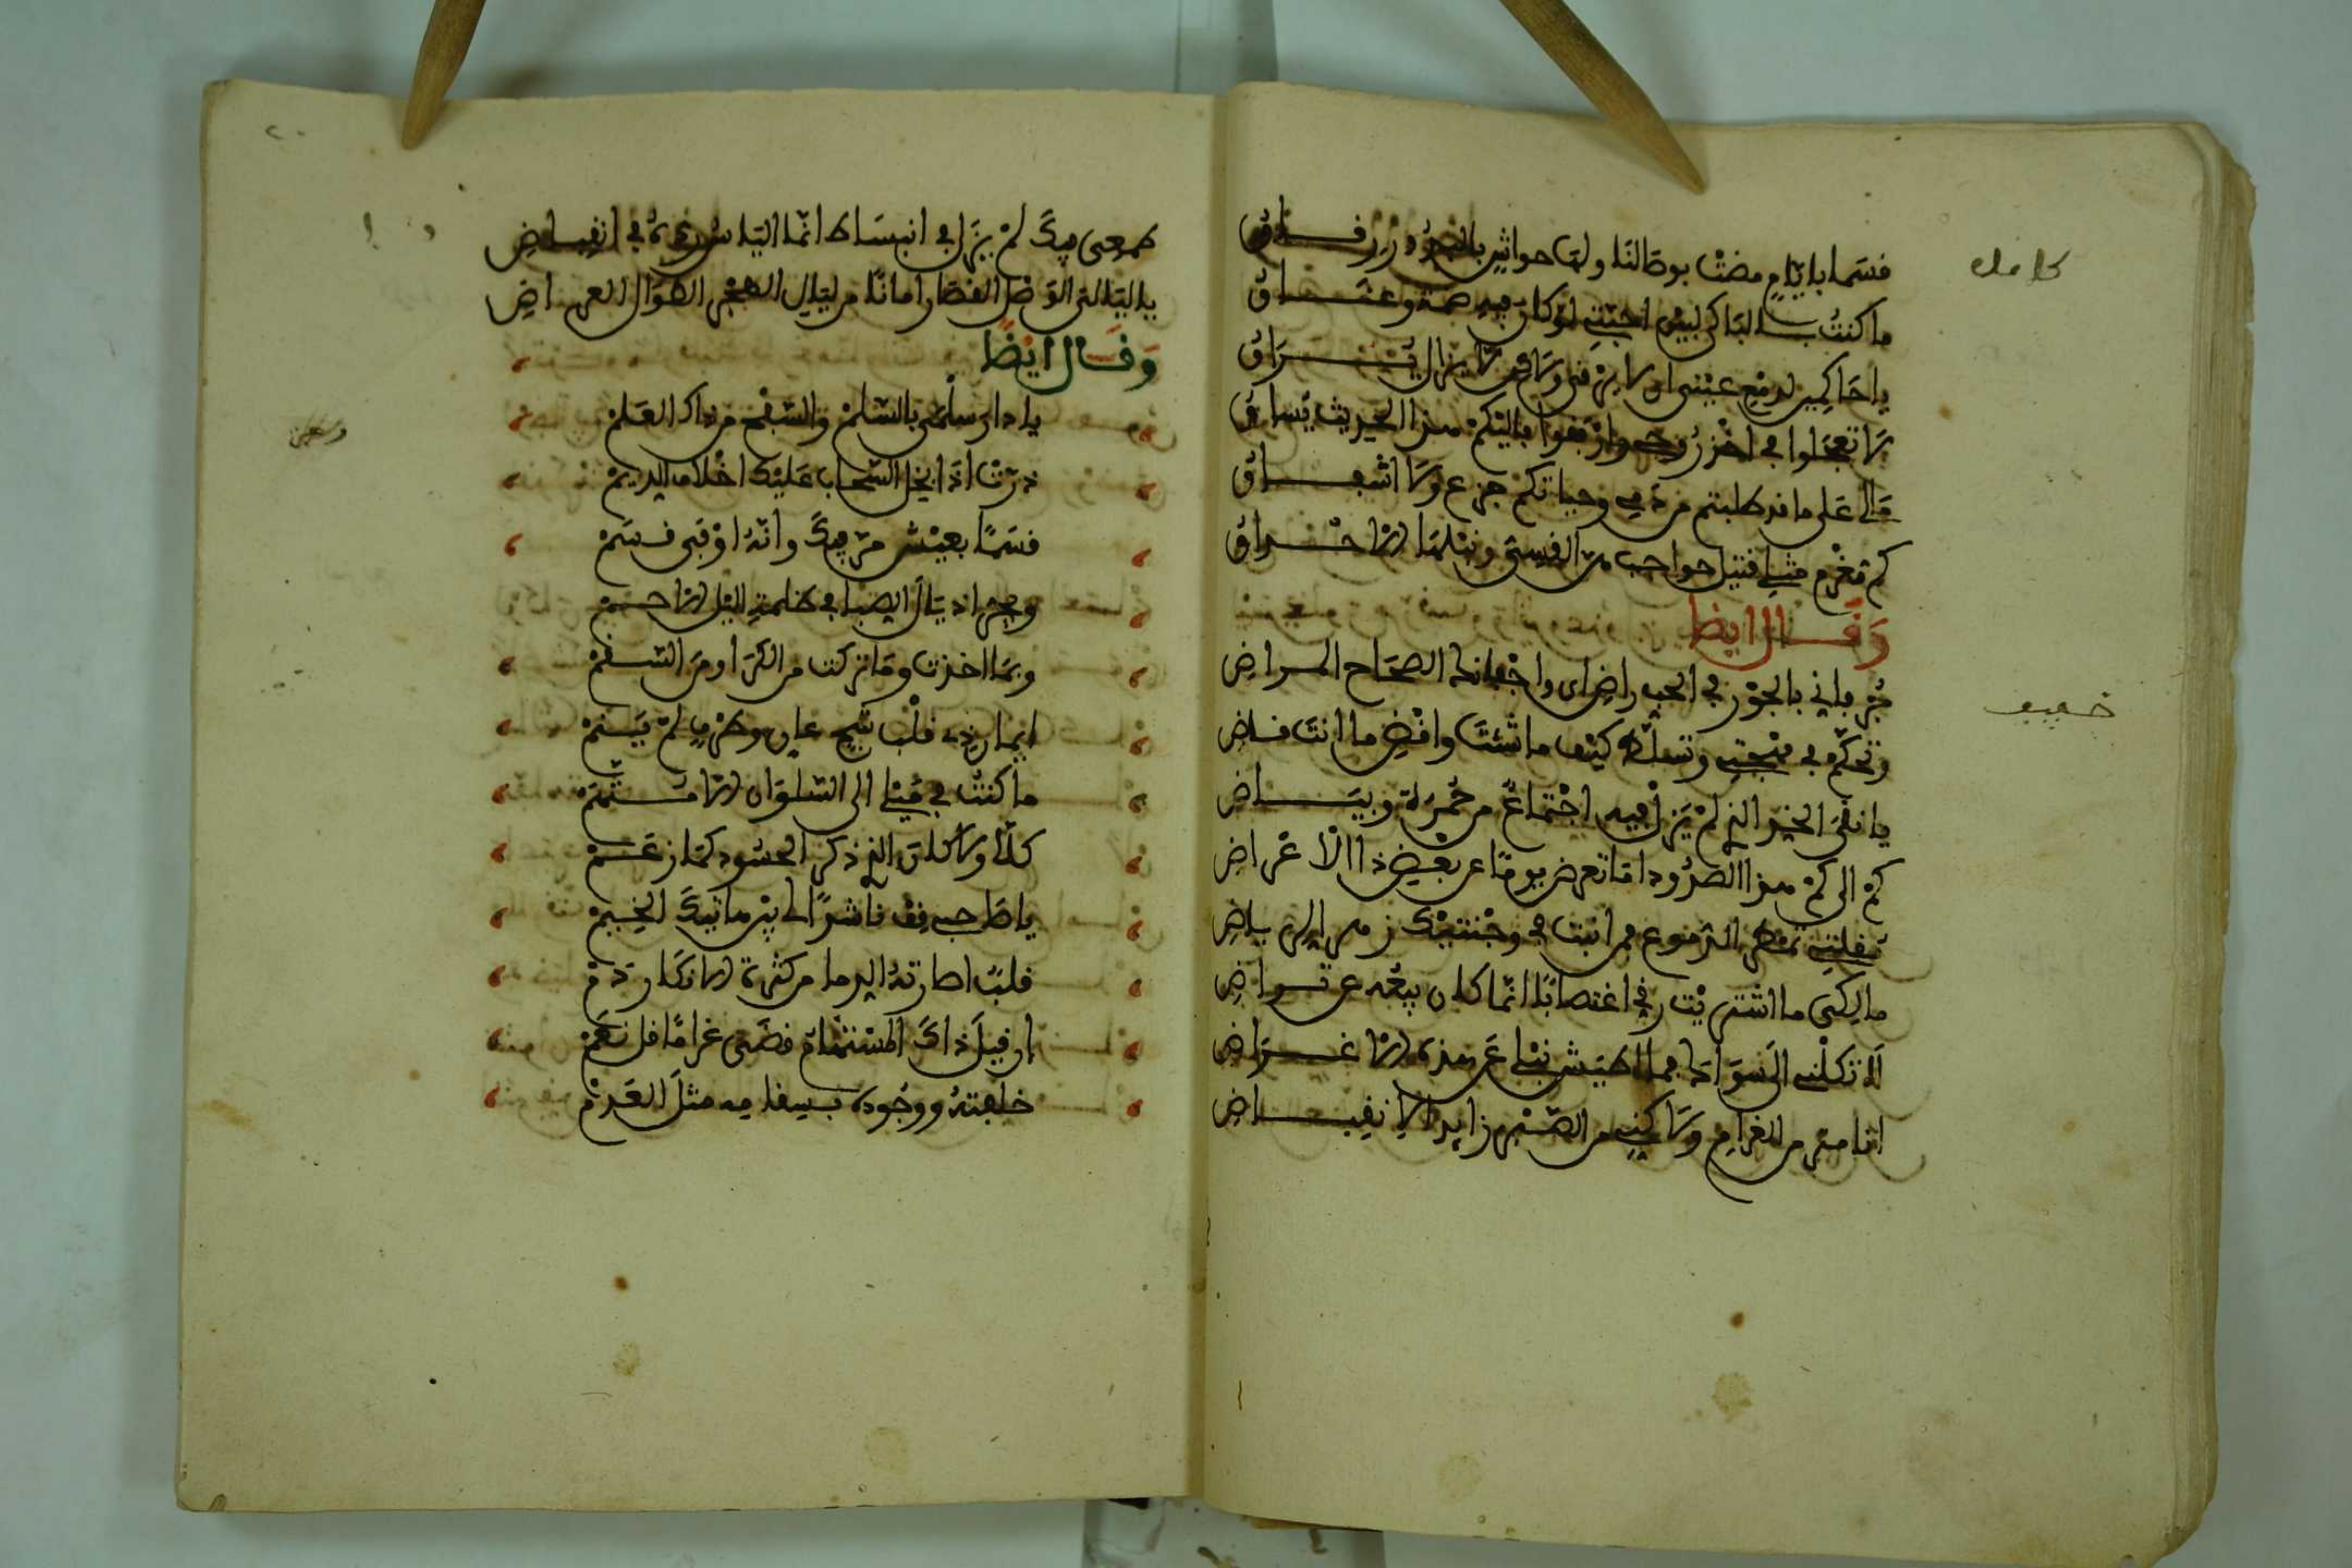 كامل
قسما بايام مضت بوصالنا ولها حواش بالسرور رقاق
ما كنت بالباكي لبين احبتي لو كان فيه ضمة وعناق
يا حاكمين لدمع عيني ان لا يرقى ولا دمي لا يزال يراق
لا تعجلوا في اخذ روحي وارفقوا فاليكم هذا الحديث يساق
مالي على ما قد طلبتم من دمي وحياتكم جزع ولا اشفاق
كم مغرم مثلي قتيل حواجب مثل القسي ونبلها الاحداق
وقال ايضا
خفيف
جر فاني بالجور في الحب راض اي واجفانك الصحاح المراض
وتحكم في مهجتي وتسلط كيف ما شئت واقض ما انت قاض
يا نقي الخد الذي لم يزل فيه اجتماع من حمرة وبياض
كم الى كم هذا الصدود اما تعرض يوما عن بعض ذا الاعراض
مقلتي تمطر الدموع فمن انبت في وجنتيك زهر الرياض
مالكي ما اشتريت رقي اغتصابا انما كان بيعه عن تراض
لا تكلني الى سواك فما طيش نبلي عن هذه الاغراض
انا مثر من الغرام ولكني من الصبر زايد الانفاض
طمعي فيك لم يزل في انبساط انما الياس رده في انقباض
يا ليالي الوصل القصار امانا من ليالي الهجر الطوال العراض
وقال ايضا
يا دار سلمى بالسلم والسفح من ذاك العلم
درت اذا بخل السحاب عليك اخلاف الديم
قسما بعيش مر فيك وانه اوفى قسم
وبجر اذيال الصبا في ظلمة الليل الاحم
وبما اخذت وما تركت من الكرا ومن السقم
ايمان ذي قلب شج عان وطرف لم ينم
ما كنت في ميلي الى السلوان الا متهم
كلا ولا كان الذي ذكر الحسود كما زعم
يا صاحبي قف ناشدا لي بين هاتيك الخيم
قلبا اطارته الدما من كثرة الانكار دم
ان قيل ذاك المستهام قضى غراما قل نعم
خلفته ووجوده بسقامه مثل العدم